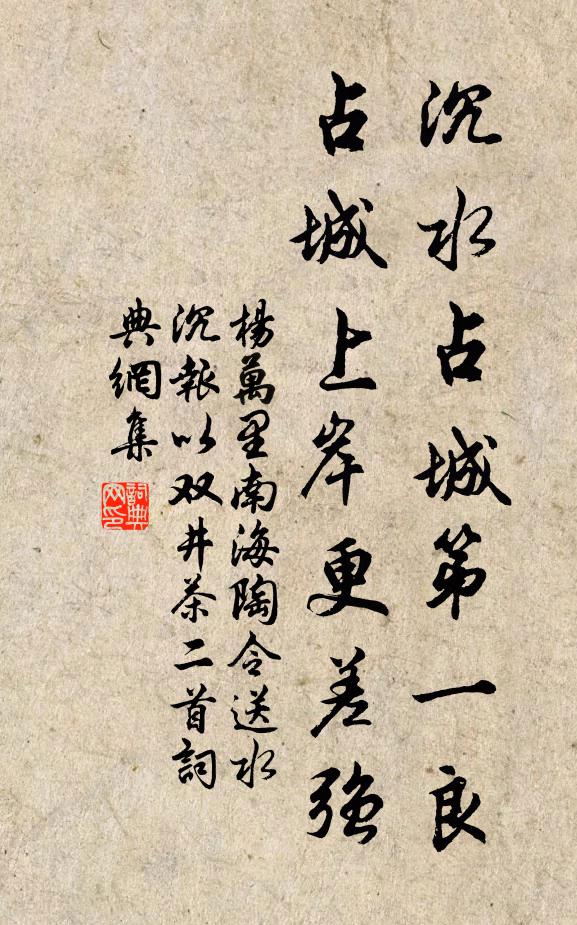 沉水占城第一良
占城上岸更差強
楊萬里南海陶令送水
沉報以双井茶二首詞
典網集
詞典
网印